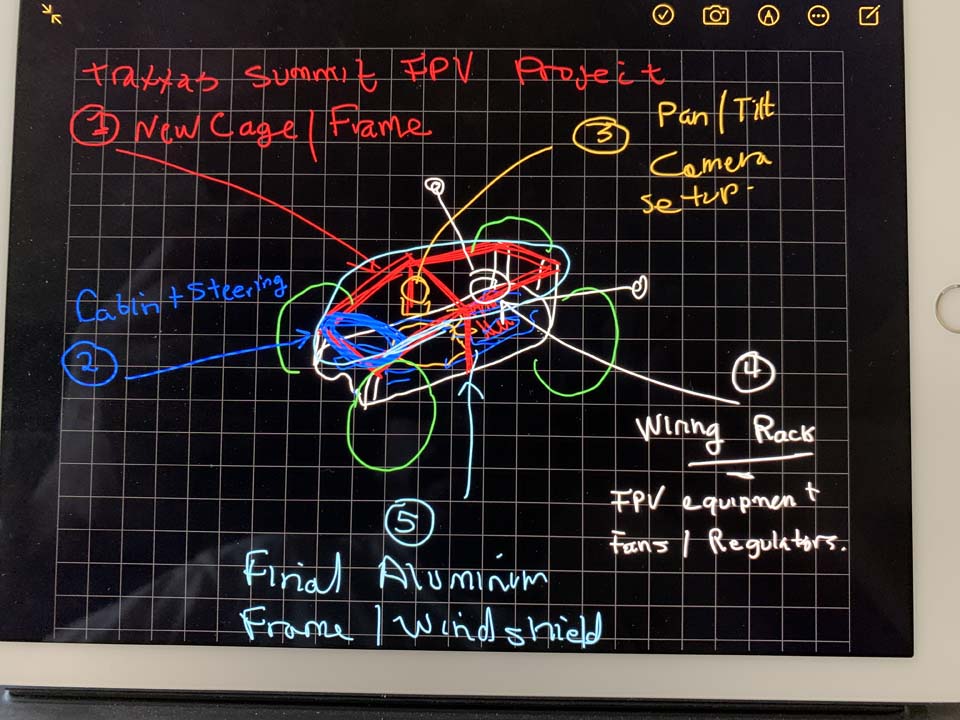 Traxxas Summit FPV Project
1 New Cage / Frame
3 Pan / Tilt
Camera
setup.
Cabin + Steering
2
4
Wiring Rack
FPV equipment
Fans / Regulators.
5
Final Aluminium
Frame / Windshield